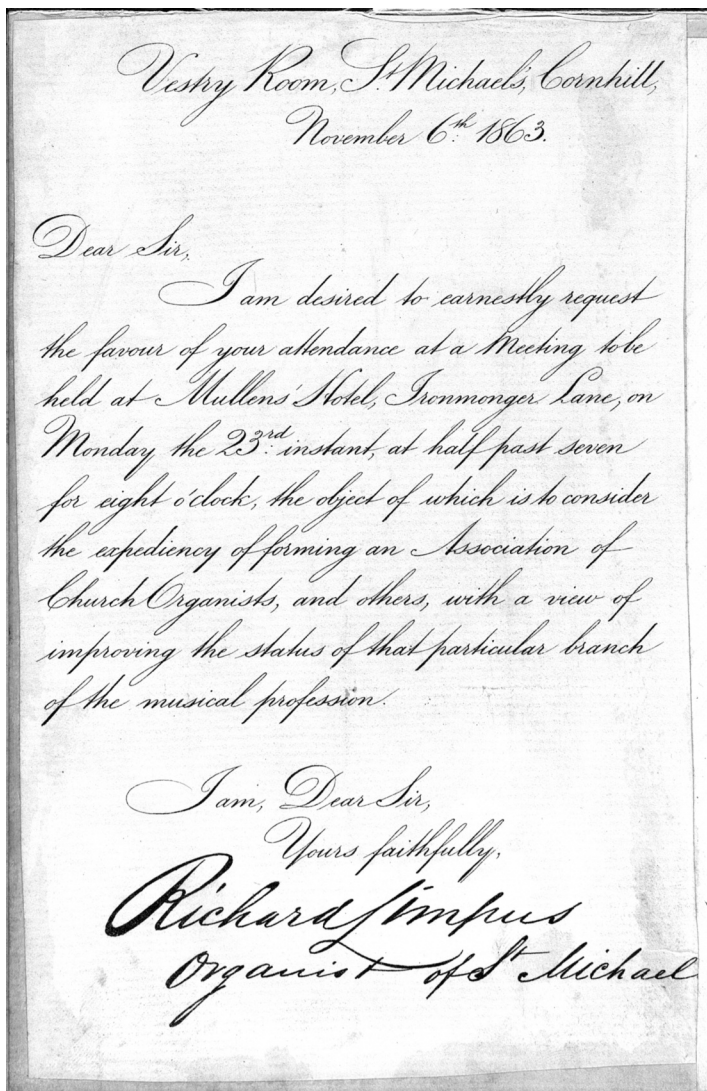 Vestry Room, St. Michael's, Cornhill,
November 6th. 1863.
Dear Sir,
I am desired to earnestly request
the favour of your attendance at a Meeting to be
held at Mullens' Hotel, Ironmonger Lane, on
Monday the 23rd. instant, at half past seven
for eight o'clock, the object of which is to consider
the expediency of forming an Association of
Church Organists, and others, with a view of
improving the status of that particular branch
of the musical profession.
I am, Dear Sir,
Yours faithfully,
Richard Limpus
Organist of St Michael